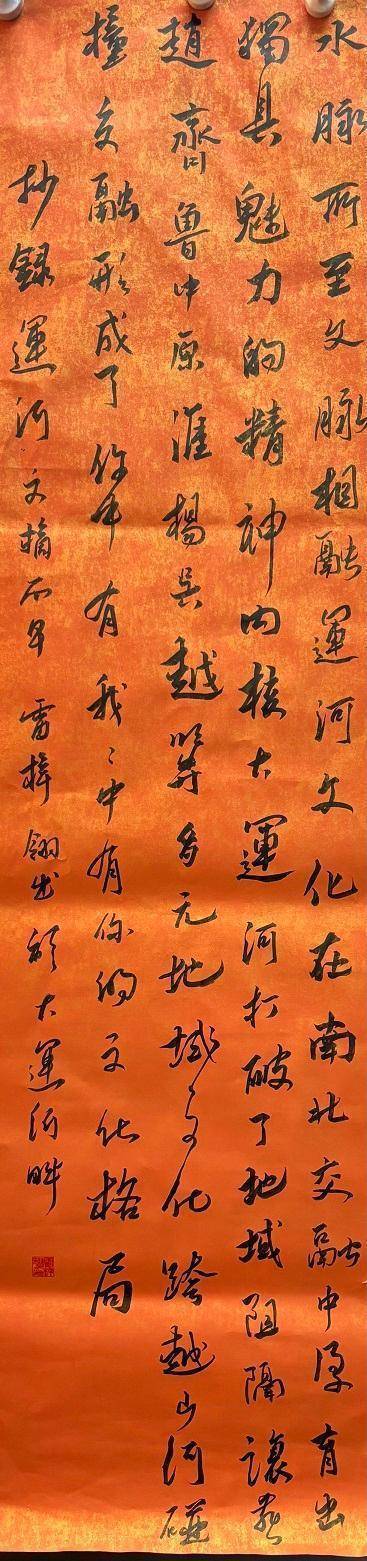 水脉所至文脉相融運河文化在南北交融中孕育出
獨具魅力的精神内核大運河打破了地域阻隔讓燕
趙齊魯中原淮揚吳越等多元地域文化跨越山河碰
撞交融形成了你中有我我中有你的文化格局
抄錄運河文摘 雷梓翎書於大運河畔